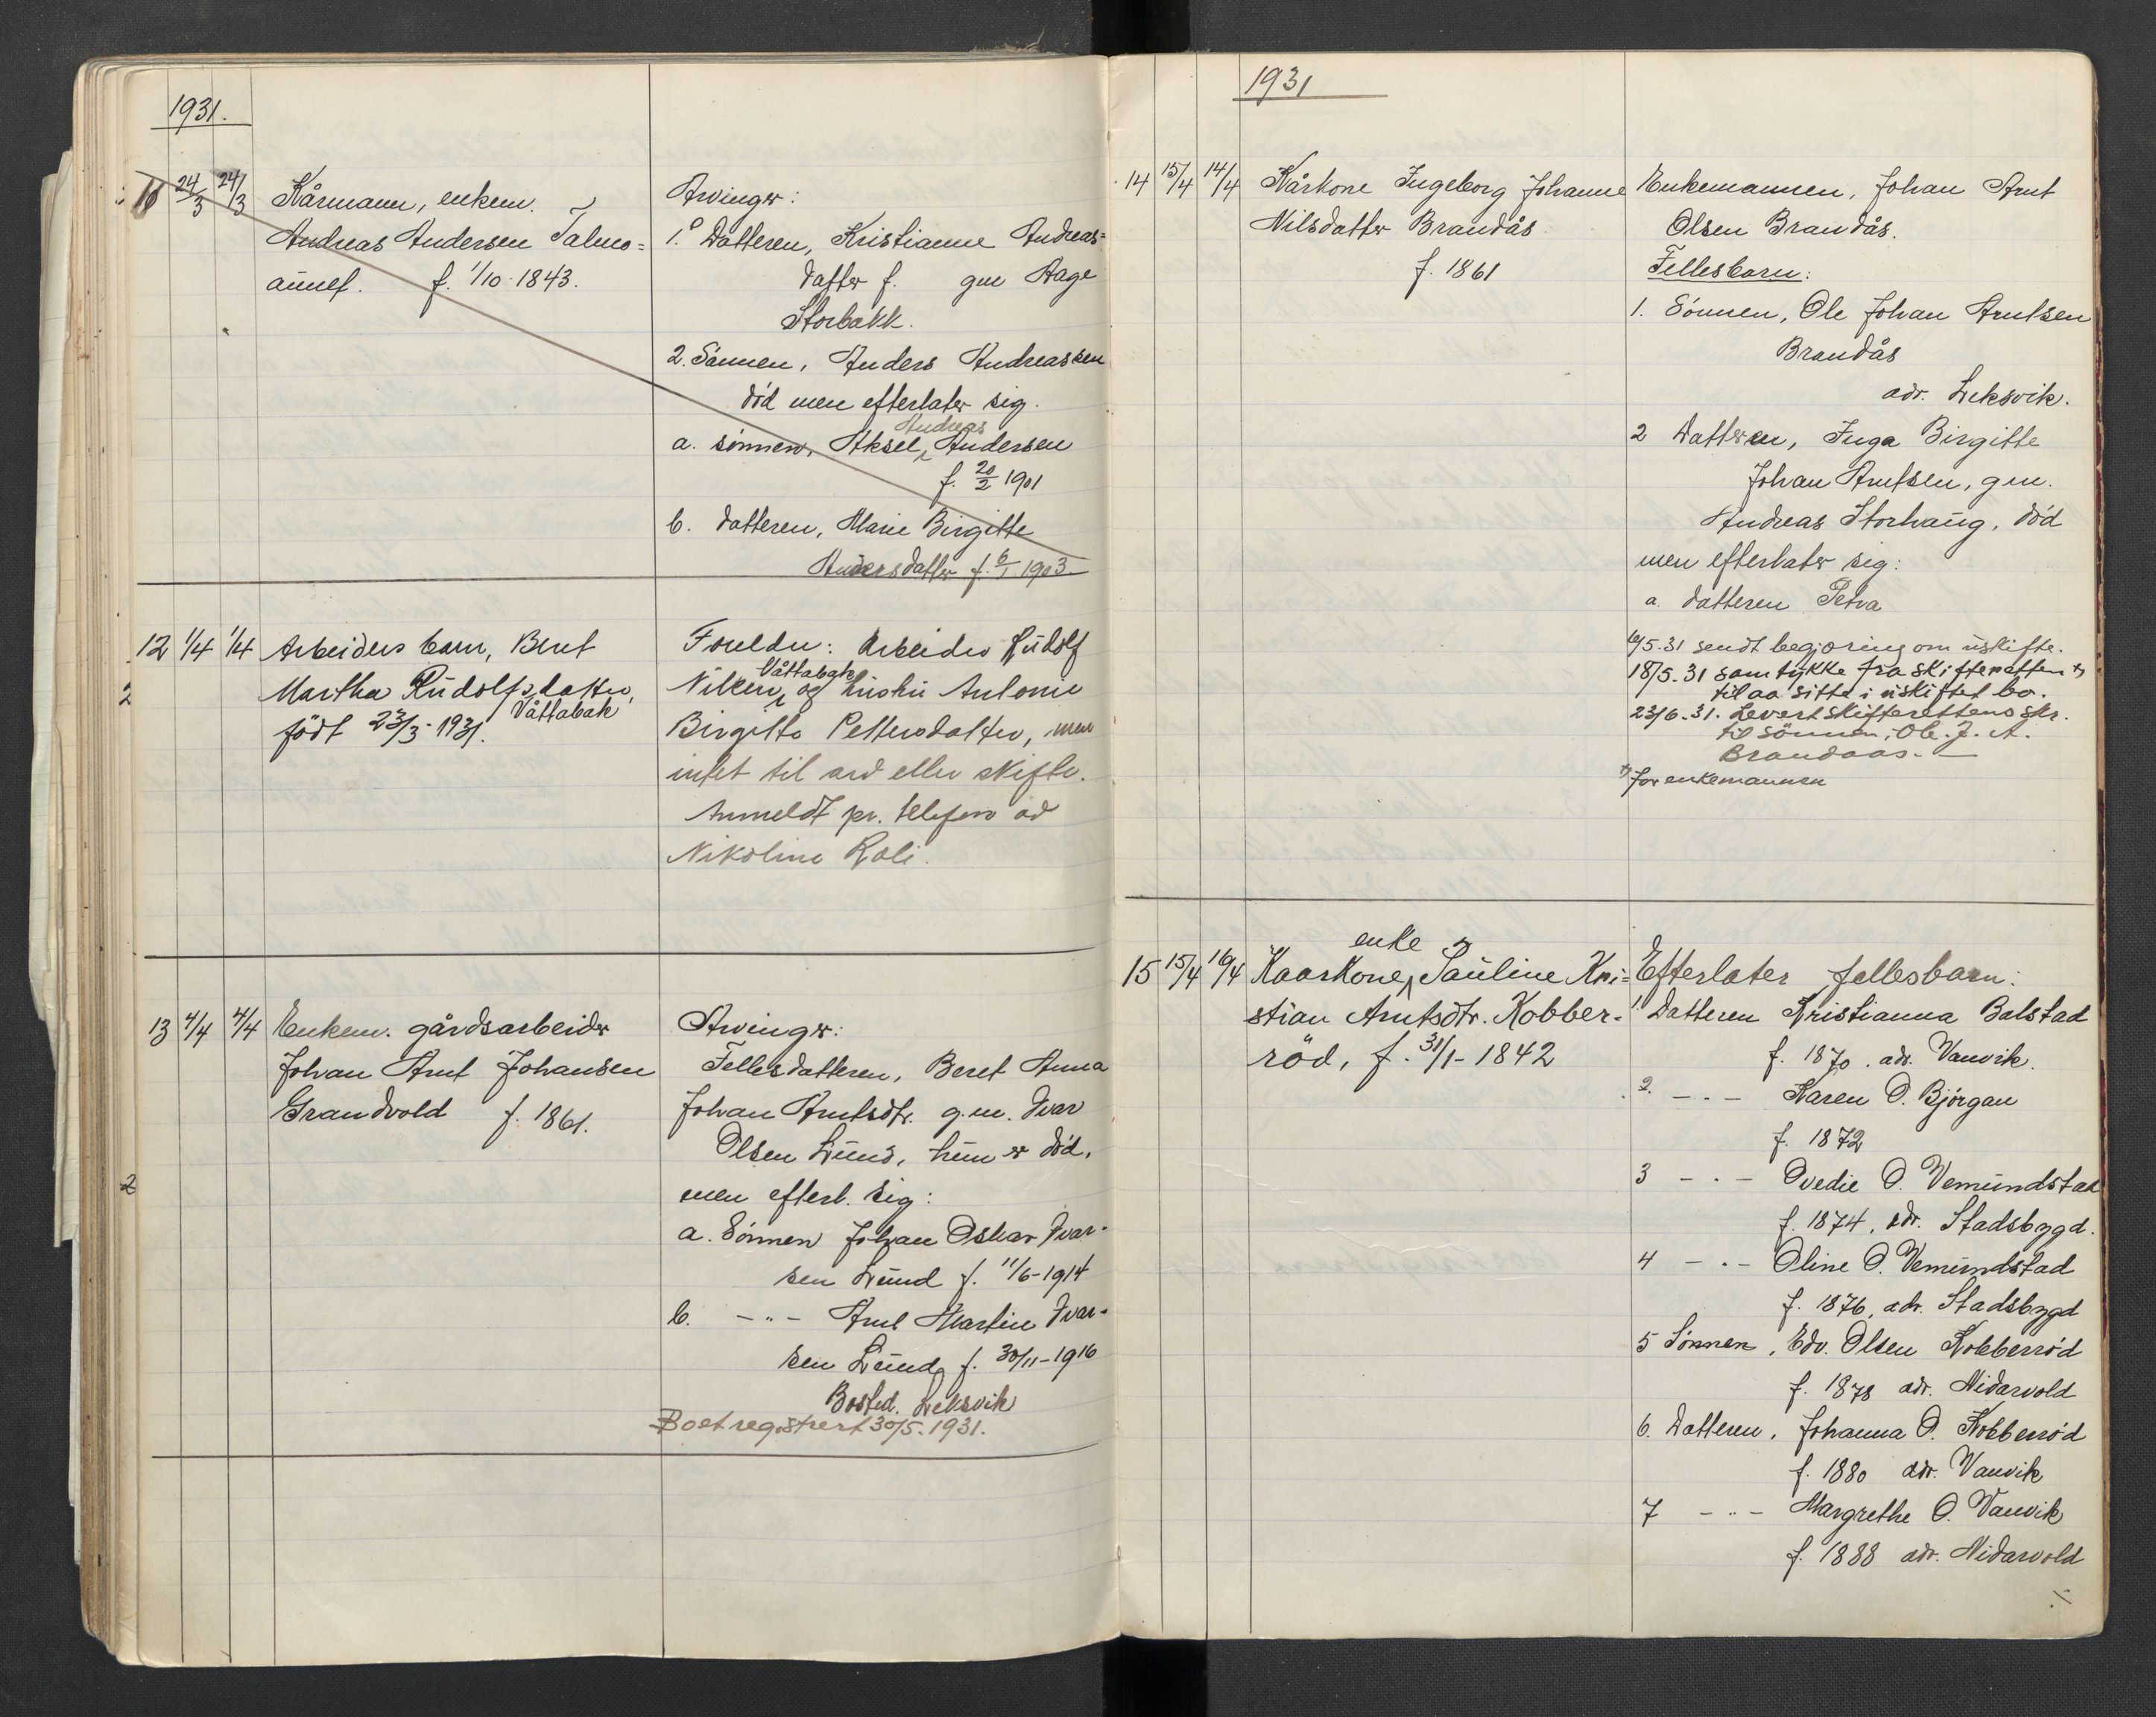 1931.
11 24/3 24/3 Kårmann, enkem.
Andreas Andersen Talmo=
aunet. f. 1/10-1843.
Arvinger:
1. Datteren, Kristianne Andreas=
datter f. gm Aage
Storbakk.
2. Sønnen, Anders Andreassen
død men efterlater sig.
Andreas
a. sønnen, Aksel, Andersen
f. 20/2 1901
b. datteren, Marie Birgitte
Andersdatter f. 6/1 1903
12 1/4 1/4 Arbeiders barn, Beret
Martha Rudolfsdatter,
Våttabak
født 23/3-1931.
2
Foreldre: Arbeider Rudolf
Våttabak
Nilsen, og hustru Antonie
Birgitte Pettersdatter, men
intet til arv eller skifte.
Anmeldt pr. telefon av
Nikoline Roli.
13 4/4 4/4 Enkem. gårdsarbeider
Johan Arnt Johansen
Grandvold f. 1861.
2
Arvinger:
Fellesdatteren, Beret Anna
Johan Arntsdtr. g.m. Ivar
Olsen Lund, hun er død,
men efterl. sig:
a. Sønnen Johan Oskar Ivar-
sen Lund f. 11/6-1914
b. -"- Arnt Martin Ivar-
sen Lund f. 30/11-1916
Bosted. Leksvik
Boet registrert 30/5.1931.
1931
14 15/4 14/4 Kårkone Ingeborg Johanne
Nilsdatter Brandås
f. 1861
Enkemannen, Johan Arnt
Olsen Brandås.
Fellesbarn:
1. Sønnen, Ole Johan Arntsen
Brandås
adr. Leksvik.
2 Datteren, Inga Birgitte
Johan Arntsen, gm.
Andreas Storhaug, død
men efterlater sig:
a. datteren Petra
6/5.31 sendt begjæring om uskifte.
18/5.31 samtykke fra skifteretten x)
til aa sitte i uskiftet bo.
23/6.31. Levert skifterettens skr.
til sønnen, Ole. J. A.
Brandaas.-
x) for enkemannen
enke
15 15/4 16/4 Kaarkone, Pauline Kri=
stian Arntsdtr. Kobber-
röd, f. 31/1-1842
Efterlater fellesbarn:
1 Datteren Kristianna Balstad
f. 1870. adr. Vanvik.
2. -"- Karen O. Bjørgan
f. 1872
3 -"- Ovedie O. Vemundstad
f. 1874, adr. Stadsbygd.
4 -"- Oline O. Vemundstad
f. 1876, adr. Stadsbygd
5 Sønnen, Edv. Olsen Kobberrød
f. 1878 adr. Nidarvold
6. Datteren, Johanna O. Kobberrød
f. 1880 adr. Vanvik
7 -"- Margrethe O. Vanvik
f. 1888 adr. Nidarvold
./.